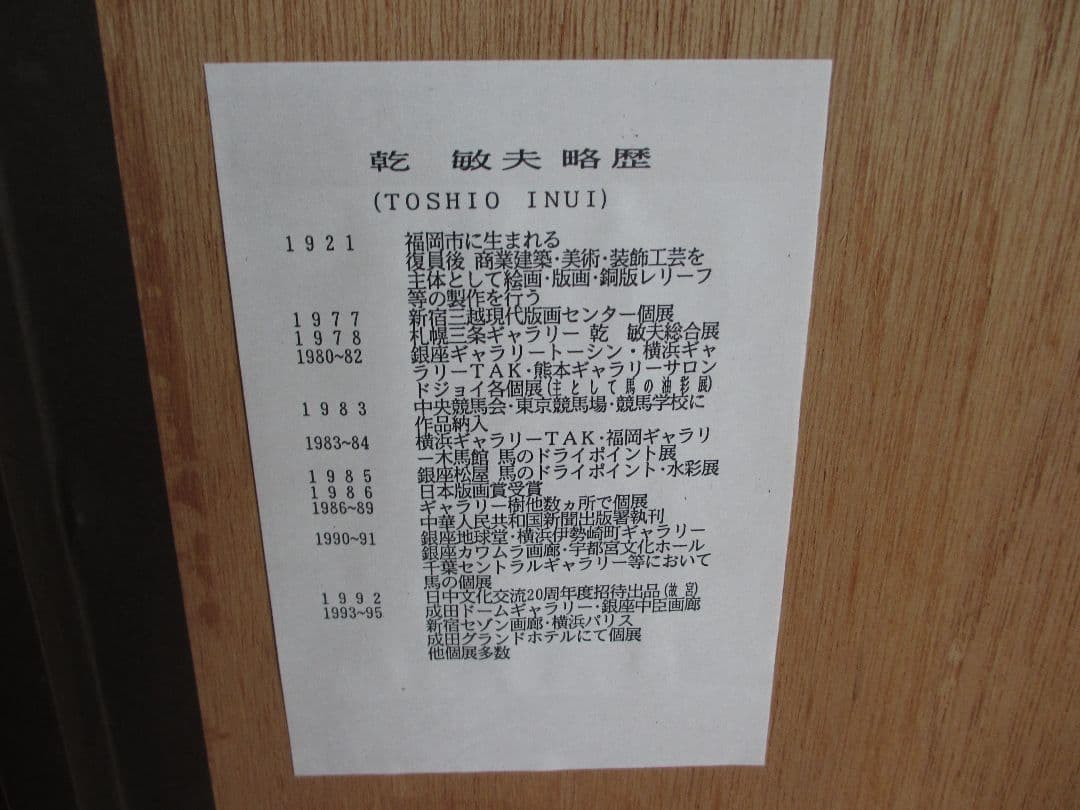 乾　敏夫略歴
(TOSHIO INUI)
1921 福岡市に生まれる
復員後 商業建築・美術・装飾工芸を
主体として絵画・版画・銅版レリーフ
等の製作を行う
1977 新宿三越現代版画センター個展
1978 札幌三条ギャラリー 乾　敏夫総合展
1980~82 銀座ギャラリートーシン・横浜ギャ
ラリーTAK・熊本ギャラリーサロン
ドジョイ各個展(主として馬の油彩展)
1983 中央競馬会・東京競馬場・競馬学校に
作品納入
1983~84 横浜ギャラリーTAK・福岡ギャラリ
ー木馬館 馬のドライポイント展
1985 銀座松屋 馬のドライポイント・水彩展
1986 日本版画賞受賞
1986~89 ギャラリー樹他数ヵ所で個展
中華人民共和国新聞出版署執刊
1990~91 銀座地球堂・横浜伊勢崎町ギャラリー
銀座カワムラ画廊・宇都宮文化ホール
千葉セントラルギャラリー等において
馬の個展
1992 日中文化交流20周年度招待出品(故宮)
1993~95 成田ドームギャラリー・銀座中臣画廊
新宿セゾン画廊・横浜パリス
成田グランドホテルにて個展
他個展多数